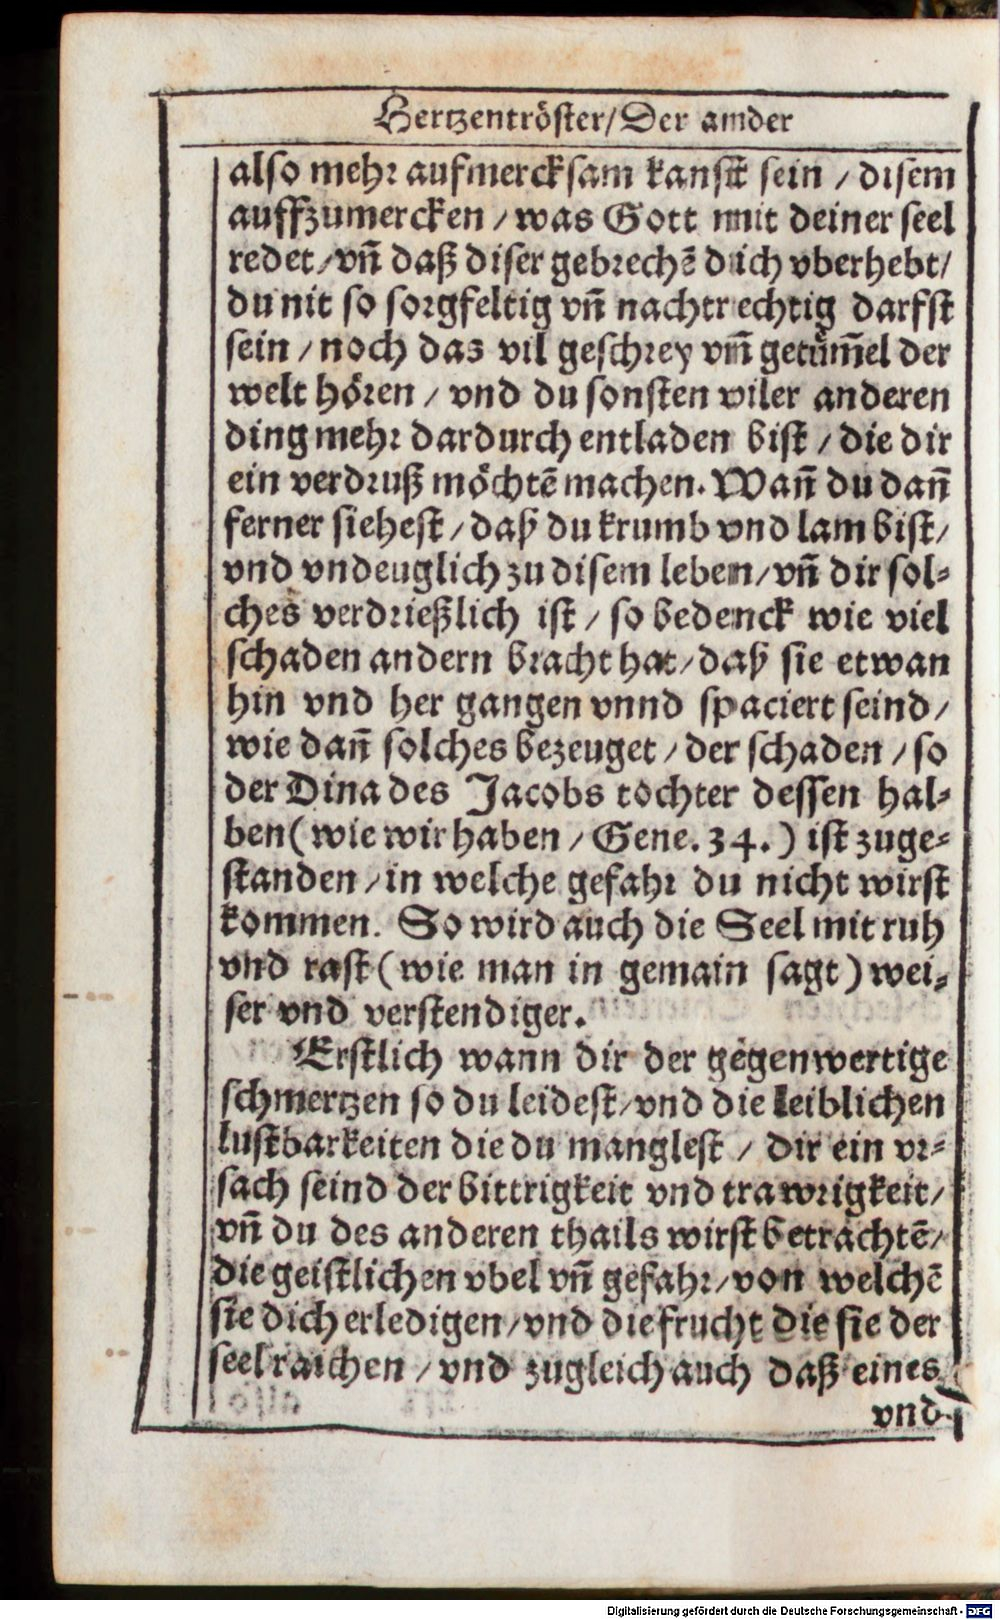 Hertzentröster/ Der ander
also mehr aufmercksam kanst sein / disem
auffzumercken / was Gott mit deiner seel
redet / vñ daß diser gebrechẽ dich vberhebt/
du nit so sorgfeltig vñ nachtrechtig darfst
sein / noch das vil geschrey vñ getüm̃el der
welt hören / vnd du sonsten viler anderen
ding mehr dardurch entladen bist / die dir
ein verdruß möchtẽ machen. Wañ du dañ
ferner siehest / daß du krumb vnd lam bist/
vnd vndeuglich zu disem leben / vñ dir sol-
ches verdrießlich ist / so bedenck wie viel
schaden andern bracht hat / daß sie etwan
hin vnd her gangen vnnd spaciert seind /
wie dañ solches bezeuget / der schaden / so
der Dina des Jacobs tochter dessen hal-
ben (wie wir haben / Gene. 34.) ist zuge-
standen / in welche gefahr du nicht wirst
kommen. So wird auch die Seel mit ruh
vnd rast (wie man in gemain sagt) wei-
ser vnd verstendiger.
Erstlich wann dir der gegenwertige
schmertzen so du leidest / vnd die leiblichen
lustbarkeiten die du manglest / dir ein vr-
sach seind der bittrigkeit vnd trawrigkeit/
vñ du des anderen thails wirst betrachtẽ/
die geistlichen vbel vñ gefahr / von welchẽ
sie dich erledigen / vnd die frucht die sie der
seel raichen / vnd zugleich auch daß eines
vnd
Digitalisierung gefördert durch die Deutsche Forschungsgemeinschaft - DFG